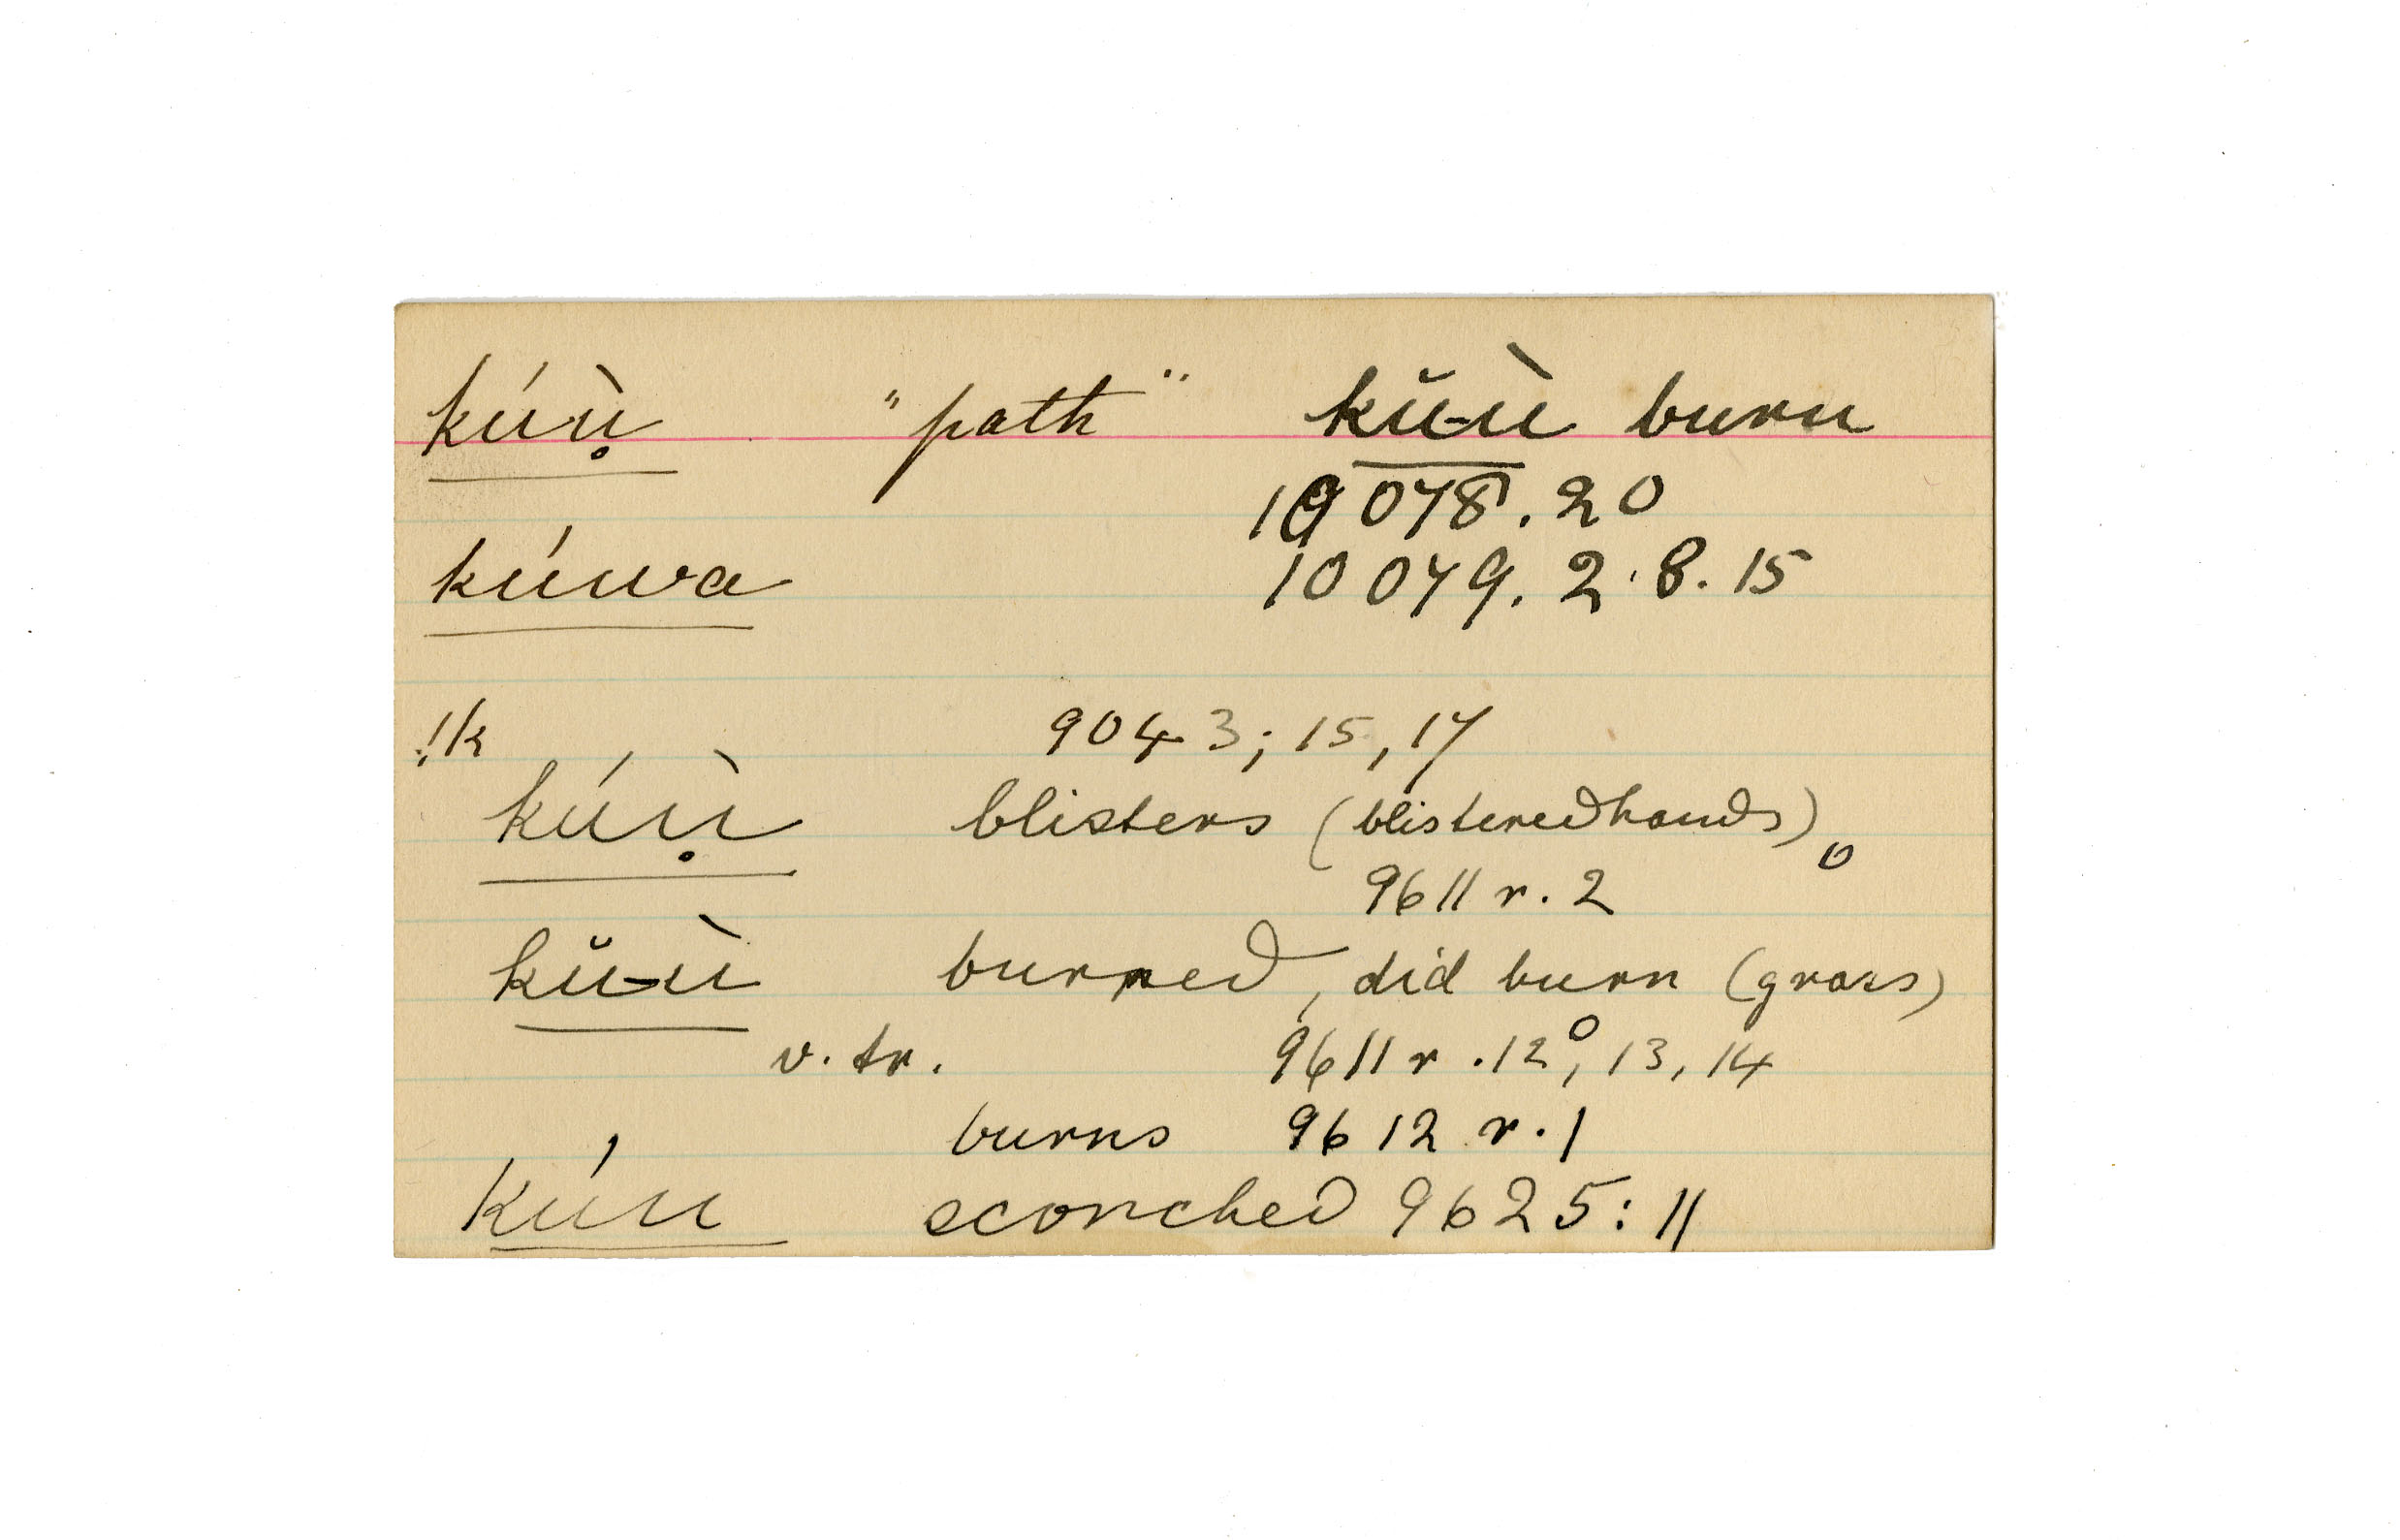 kúụ̀ "path" kŭ-ù burn
10078.20
kúwa 10079.2.8.15
!k 9043; 15, 17
kúụ̀ blisters (blistered hands)
9611 r. 2
kŭ-ù burned, did burn (grass)
v. tr. 9611 r. 12°, 13, 14
burns 9612 r. 1
kúu scorched 9625: 11